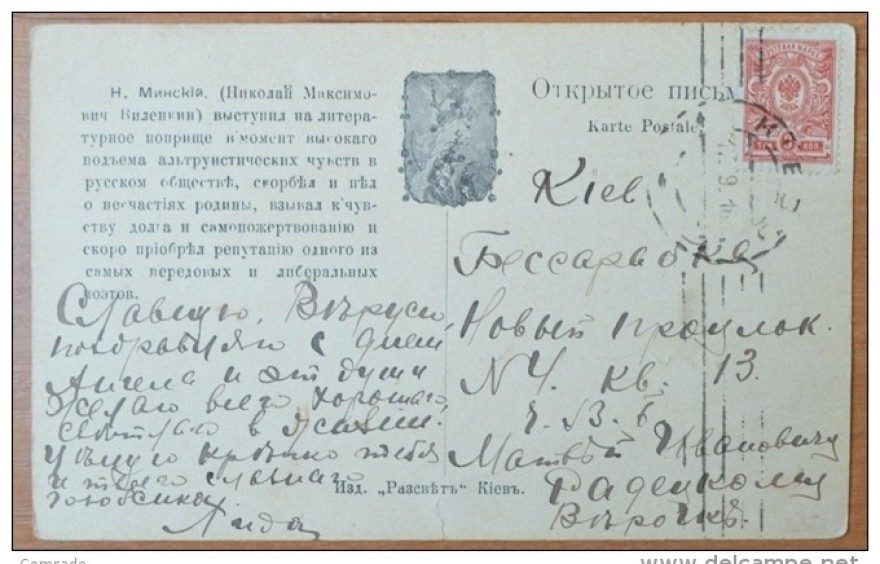 Н. Минскій. (Николай Максимо-
вич Виленкин) выступил на литера-
турное поприще в момент высокаго
подъема альтруистических чувств в
русском обществѣ, скорбѣл и пѣл
о несчастіях родины, взывал к чув-
ству долга и самопожертвованію и
скоро пріобрѣл репутацію одного из
самых передовых и либеральных
поэтов.
Открытое письм
Karte Postale.
ПОЧТОВАЯ МАРКА
ТРИ 3 КОП
Кіев
Бессарабка
Новый проулок.
N 4. кв. 13.
Матвѣю Ивановичу
Радецкому
Вѣрочкѣ.
Славную Вѣрусю
поздравляю с днем
Ангела и от души
желаю всего хорошаго,
свѣтлаго в жизни.
Цѣлую крѣпко тебя
и твоего славнаго
голубчика
Лида
Изд. „Разсвѣтъ" Кіевъ.
Comrade
www.delcampe.net